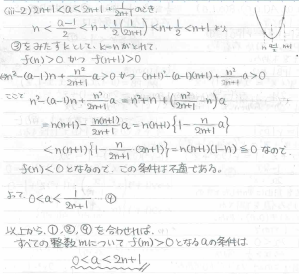 (iii-2) 2n+1<a<2n+1+1/(2n+1) のとき
n < (a-1)/2 < n + 1/2 (1/(2n+1)) < n + 1/2 < n+1 より
③をみたすkとして、k=nがとれて、
f(n)>0 かつ f(n+1)>0
⇔ n²-(a-1)n+n³/(2n+1) a>0 かつ (n+1)²-(a-1)(n+1)+n³/(2n+1) a>0
ここで
n²-(a-1)n+n³/(2n+1) a = n²+n+(n³/(2n+1)-n)a
= n(n+1) - n(n+1)/(2n+1) a = n(n+1){1-n/(2n+1) a}
< n(n+1){1-n/(2n+1) (2n+1)} = n(n+1)(1-n) ≦ 0 なので、
f(n)<0 となるので、この条件は不適である。
よって、0<a<1/(2n+1) ④
以上から、①,②,④を合わせれば、
すべての整数mについて f(m)>0となるaの条件は
0<a<2n+1
n
n+1